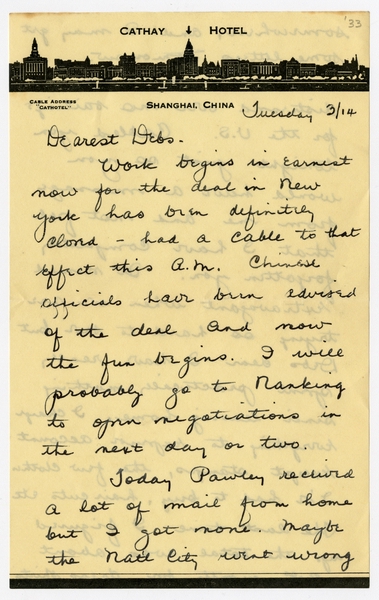 '33
CATHAY HOTEL
CABLE ADDRESS
"CATHOTEL"
SHANGHAI, CHINA
Tuesday 3/14
Dearest Debs.
Work begins in earnest
now for the deal in New
York has been definitely
closed - had a cable to that
effect this A.M. Chinese
officials have been advised
of the deal and now
the fun begins. I will
probably go to Nanking
to open negotiations in
the next day or two.
Today Pawley received
a lot of mail from home
but I got none. Maybe
the Natl City went wrong